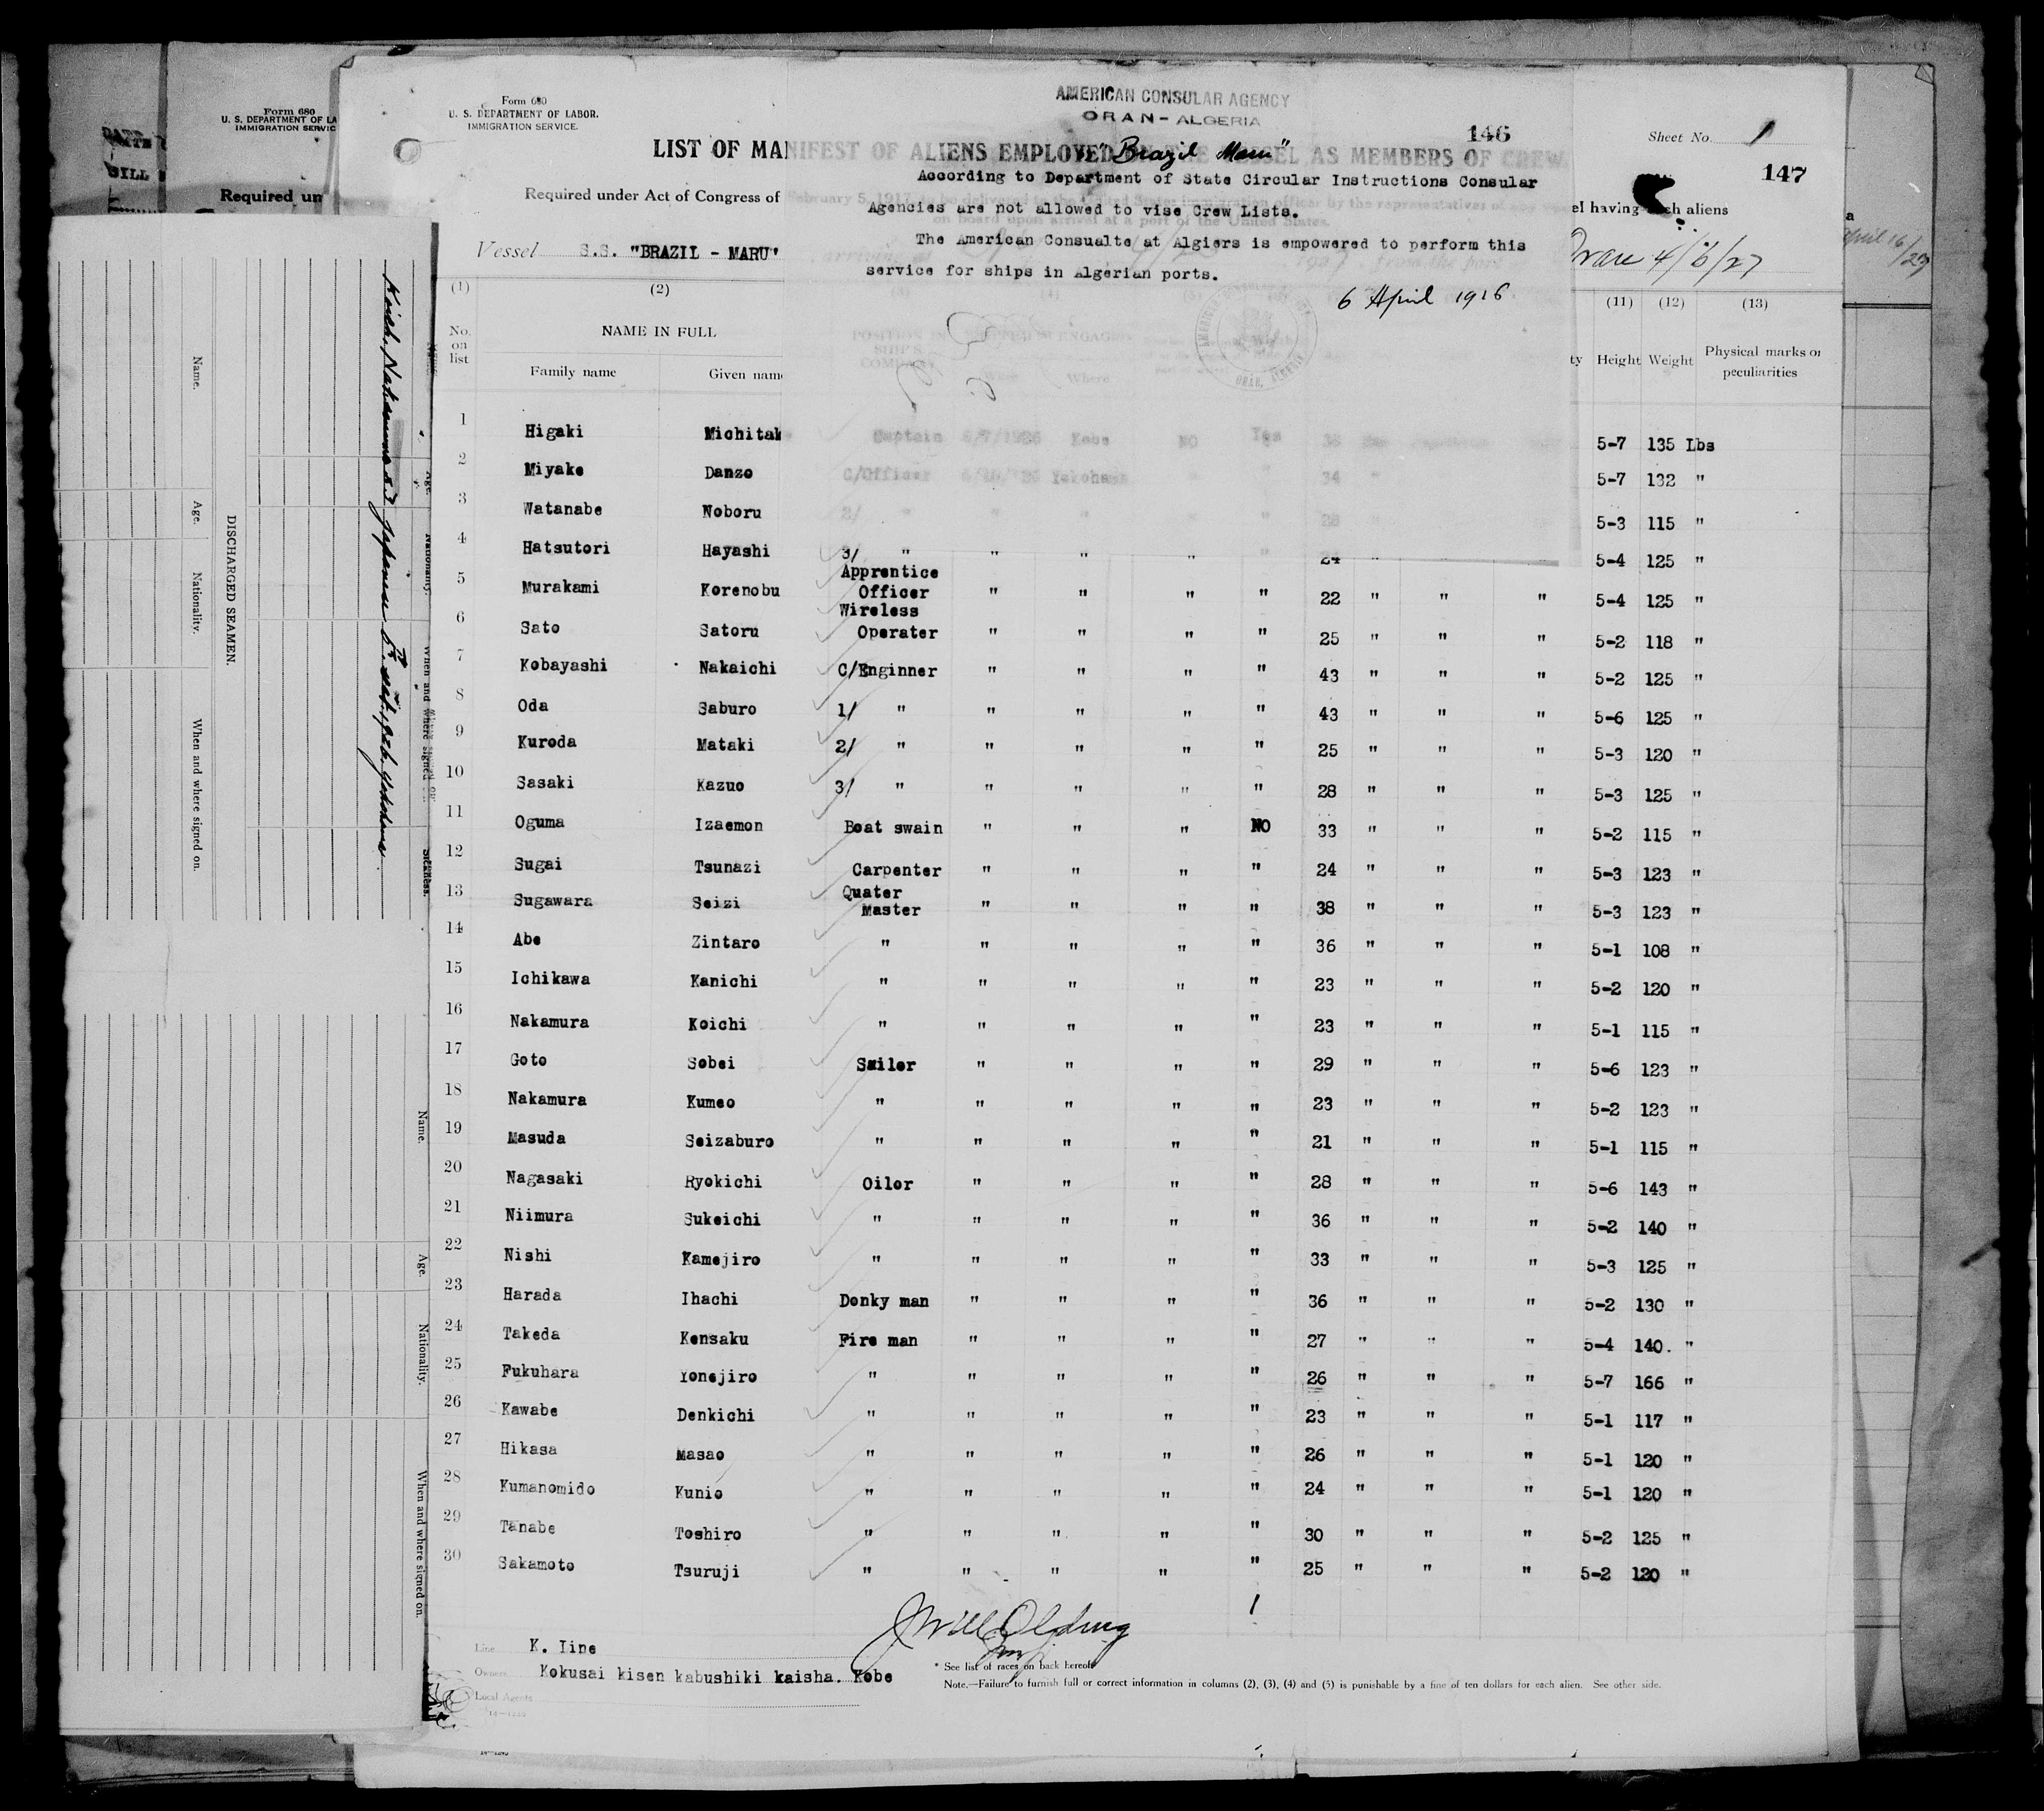 Form 680
U. S. DEPARTMENT OF LABOR.
IMMIGRATION SERVICE.
Form 680
U. S. DEPARTMENT OF LA
IMMIGRATION SERVIC
Required un
AMERICAN CONSULAR AGENCY
ORAN - ALGERIA
146
Sheet No. 1
147
LIST OF MANIFEST OF ALIENS EMPLOYED VESSEL AS MEMBERS OF CREW
"Brazil Maru"
According to Department of State Circular Instructions Consular
Agencies are not allowed to vise Crew Lists.
The American Consualte at Algiers is empowered to perform this
service for ships in Algerian ports.
6 April 1916
Required under Act of Congress of
el having such aliens
Vessel S.S. "BRAZIL - MARU"
Oran 4/6/27
(1) (2) (11) (12) (13)
No. on list
NAME IN FULL
Family name Given name
ty Height Weight Physical marks or peculiarities
1 Higaki Michitak Captain 5-7 135 Lbs
2 Miyake Danzo C/Officer Yokohama 34 " 5-7 132 "
3 Watanabe Noboru 2/ " " " " " 28 " 5-3 115 "
4 Hatsutori Hayashi 3/ " " " " " 24 " 5-4 125 "
5 Murakami Korenobu Apprentice Officer " " " " 22 " " " 5-4 125 "
6 Sato Satoru Wireless Operater " " " " 25 " " " 5-2 118 "
7 Kobayashi Nakaichi C/Enginner " " " " 43 " " " 5-2 125 "
8 Oda Saburo 1/ " " " " " 43 " " " 5-6 125 "
9 Kuroda Mataki 2/ " " " " " 25 " " " 5-3 120 "
10 Sasaki Kazuo 3/ " " " " " 28 " " " 5-3 125 "
11 Oguma Izaemon Boat swain " " " NO 33 " " " 5-2 115 "
12 Sugai Tsunazi Carpenter " " " " 24 " " " 5-3 123 "
13 Sugawara Seizi Quater Master " " " " 38 " " " 5-3 123 "
14 Abe Zintaro " " " " " 36 " " " 5-1 108 "
15 Ichikawa Kanichi " " " " " 23 " " " 5-2 120 "
16 Nakamura Koichi " " " " " 23 " " " 5-1 115 "
17 Goto Sobei Sailor " " " " 29 " " " 5-6 123 "
18 Nakamura Kumeo " " " " " 23 " " " 5-2 123 "
19 Masuda Seizaburo " " " " " 21 " " " 5-1 115 "
20 Nagasaki Ryokichi Oiler " " " " 28 " " " 5-6 143 "
21 Niimura Sukeichi " " " " " 36 " " " 5-2 140 "
22 Nishi Kamejiro " " " " " 33 " " " 5-3 125 "
23 Harada Ihachi Donky man " " " " 36 " " " 5-2 130 "
24 Takeda Kensaku Fire man " " " " 27 " " " 5-4 140. "
25 Fukuhara Yonejiro " " " " " 26 " " " 5-7 166 "
26 Kawabe Denkichi " " " " " 23 " " " 5-1 117 "
27 Hikasa Masao " " " " " 26 " " " 5-1 120 "
28 Kumanomido Kunio " " " " " 24 " " " 5-1 120 "
29 Tanabe Toshiro " " " " " 30 " " " 5-2 125 "
30 Sakamoto Tsuruji " " " " " 25 " " " 5-2 120 "
Line K. Iine
Owners Kokusai kisen kabushiki kaisha. Kobe
Local Agents
* See list of races on back hereof.
Note.—Failure to furnish full or correct information in columns (2), (3), (4) and (5) is punishable by a fine of ten dollars for each alien. See other side.
DISCHARGED SEAMEN.
Name.
Age.
Nationality.
When and where signed on.
Name.
Age.
Nationality.
When and where signed on.
Sickness.